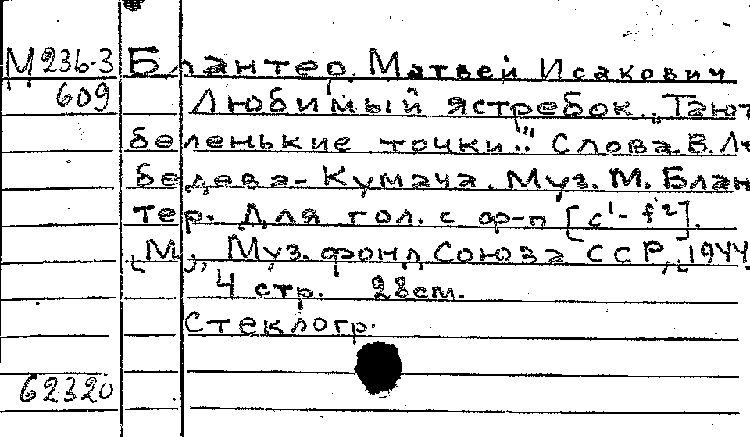 М 236-3 Блантер, Матвей Исакович
609 Любимый ястребок. „Тают
беленькие точки..." Слова В. Ле-
бедева-Кумача. Муз. М. Блан-
тер. Для гол. с ф-п [c¹- f²].
[М], Муз. фонд Союза ССР, [1944
4 стр. 28см.
Стеклогр.
62320